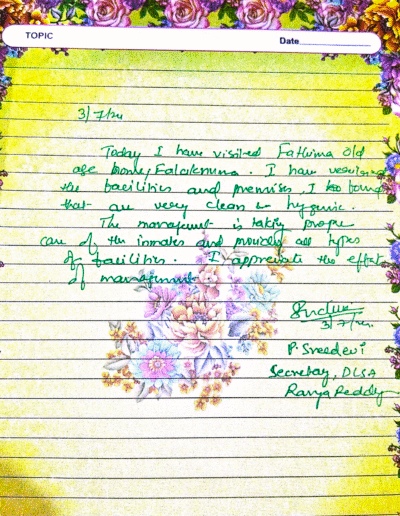 TOPIC
Date
3/7/24
Today I have visited Fathima Old
age home, Falaknuma. I have verified
the facilities and premises, I too found
that are very clean & hygenic.
The management is taking proper
care of the inmates and provided all types
of facilities. I appreciate the efforts
of management
3/7/24
P. Sreedevi
Secretary, DLSA
Ranga Reddy